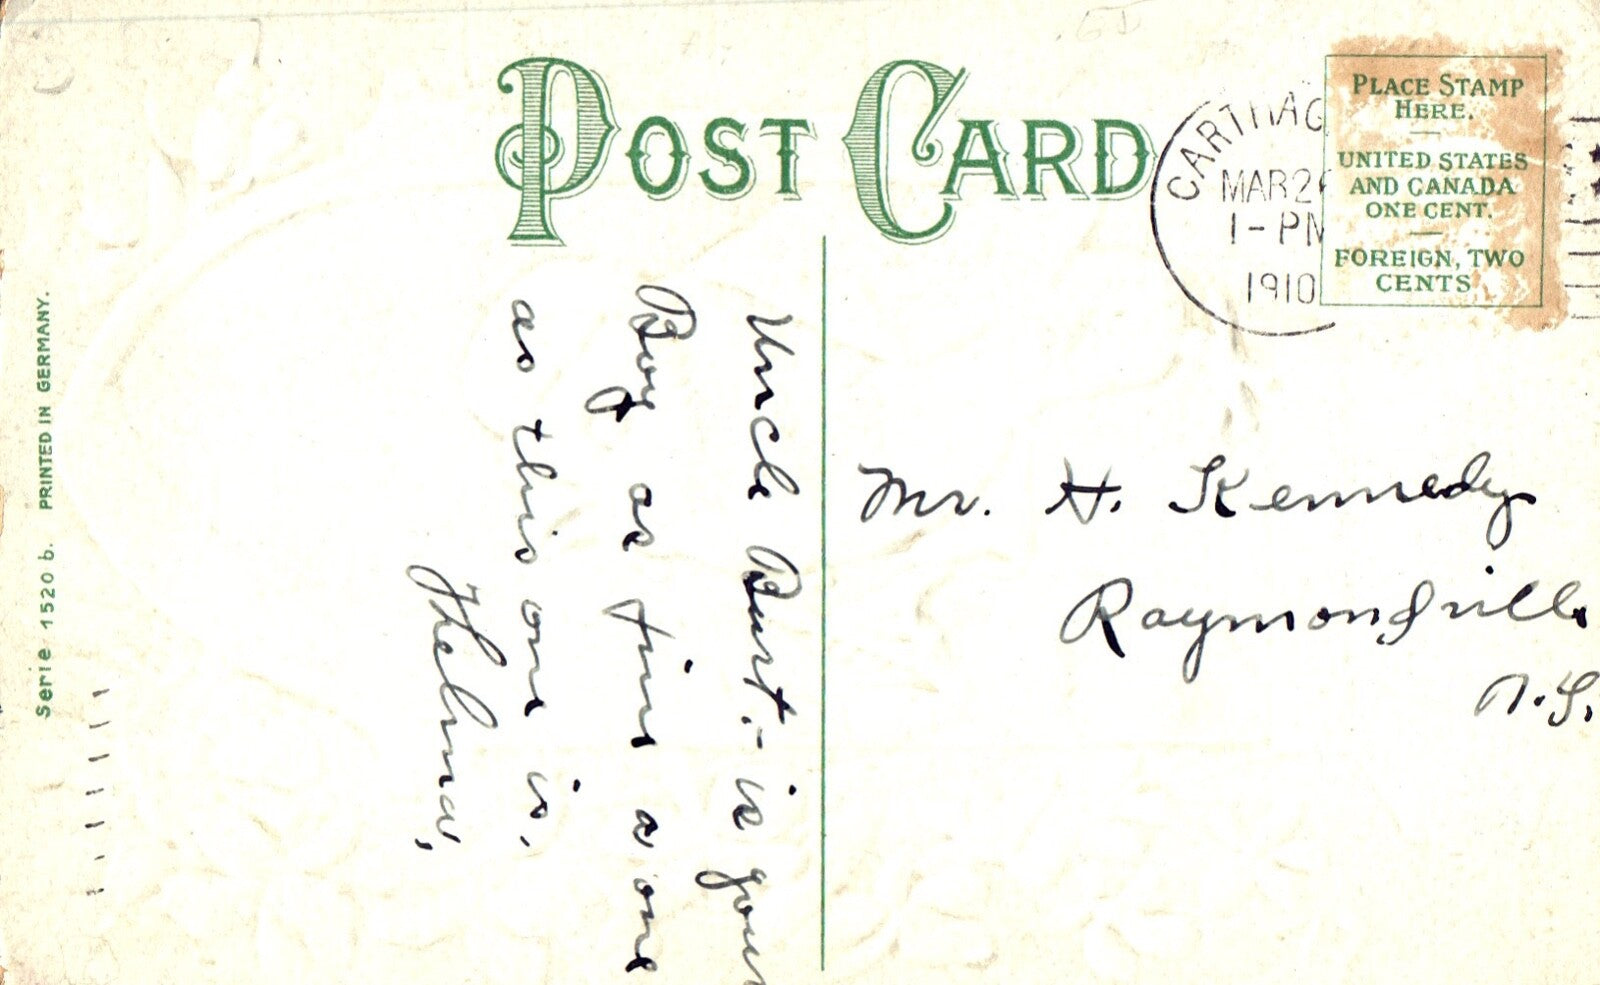 POST CARD
CARTHAG
MAR 2
1-PM
1910
PLACE STAMP
HERE.
UNITED STATES
AND CANADA
ONE CENT.
FOREIGN, TWO
CENTS
Uncle Burt.- is your
Boy as fine a one
as this one is,
Thelma,
Mr. H. Kennedy
Raymondville
N.Y.
Serie 1520 b. PRINTED IN GERMANY.